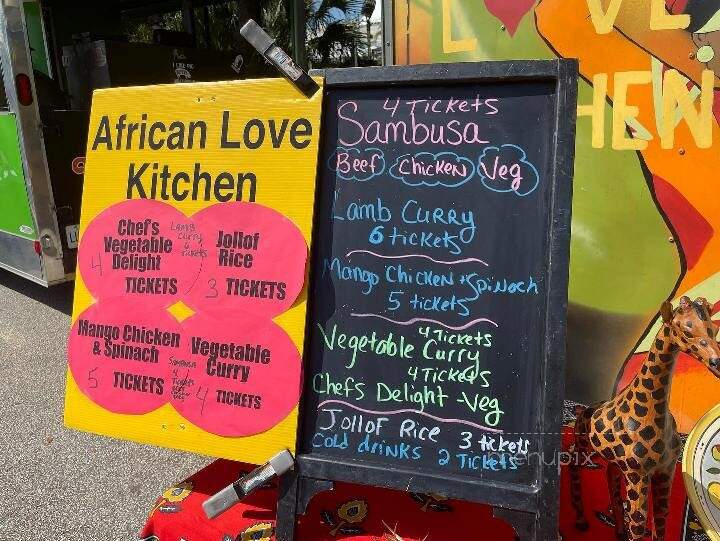 African Love
Kitchen
Chef's
Vegetable
Delight
4 TICKETS
Lamb
Curry
6
tickets
Jollof
Rice
3 TICKETS
Mango Chicken
& Spinach
5 TICKETS
Sambusa
4
Tickets
Vegetable
Curry
4 TICKETS
4 Tickets
Sambusa
Beef Chicken Veg
Lamb Curry
6 tickets
Mango Chicken + Spinach
5 tickets
4 Tickets
Vegetable Curry
4 Tickets
Chefs Delight - Veg
Jollof Rice 3 tickets
Cold drinks 2 Tickets
menupix
L VE
HEN